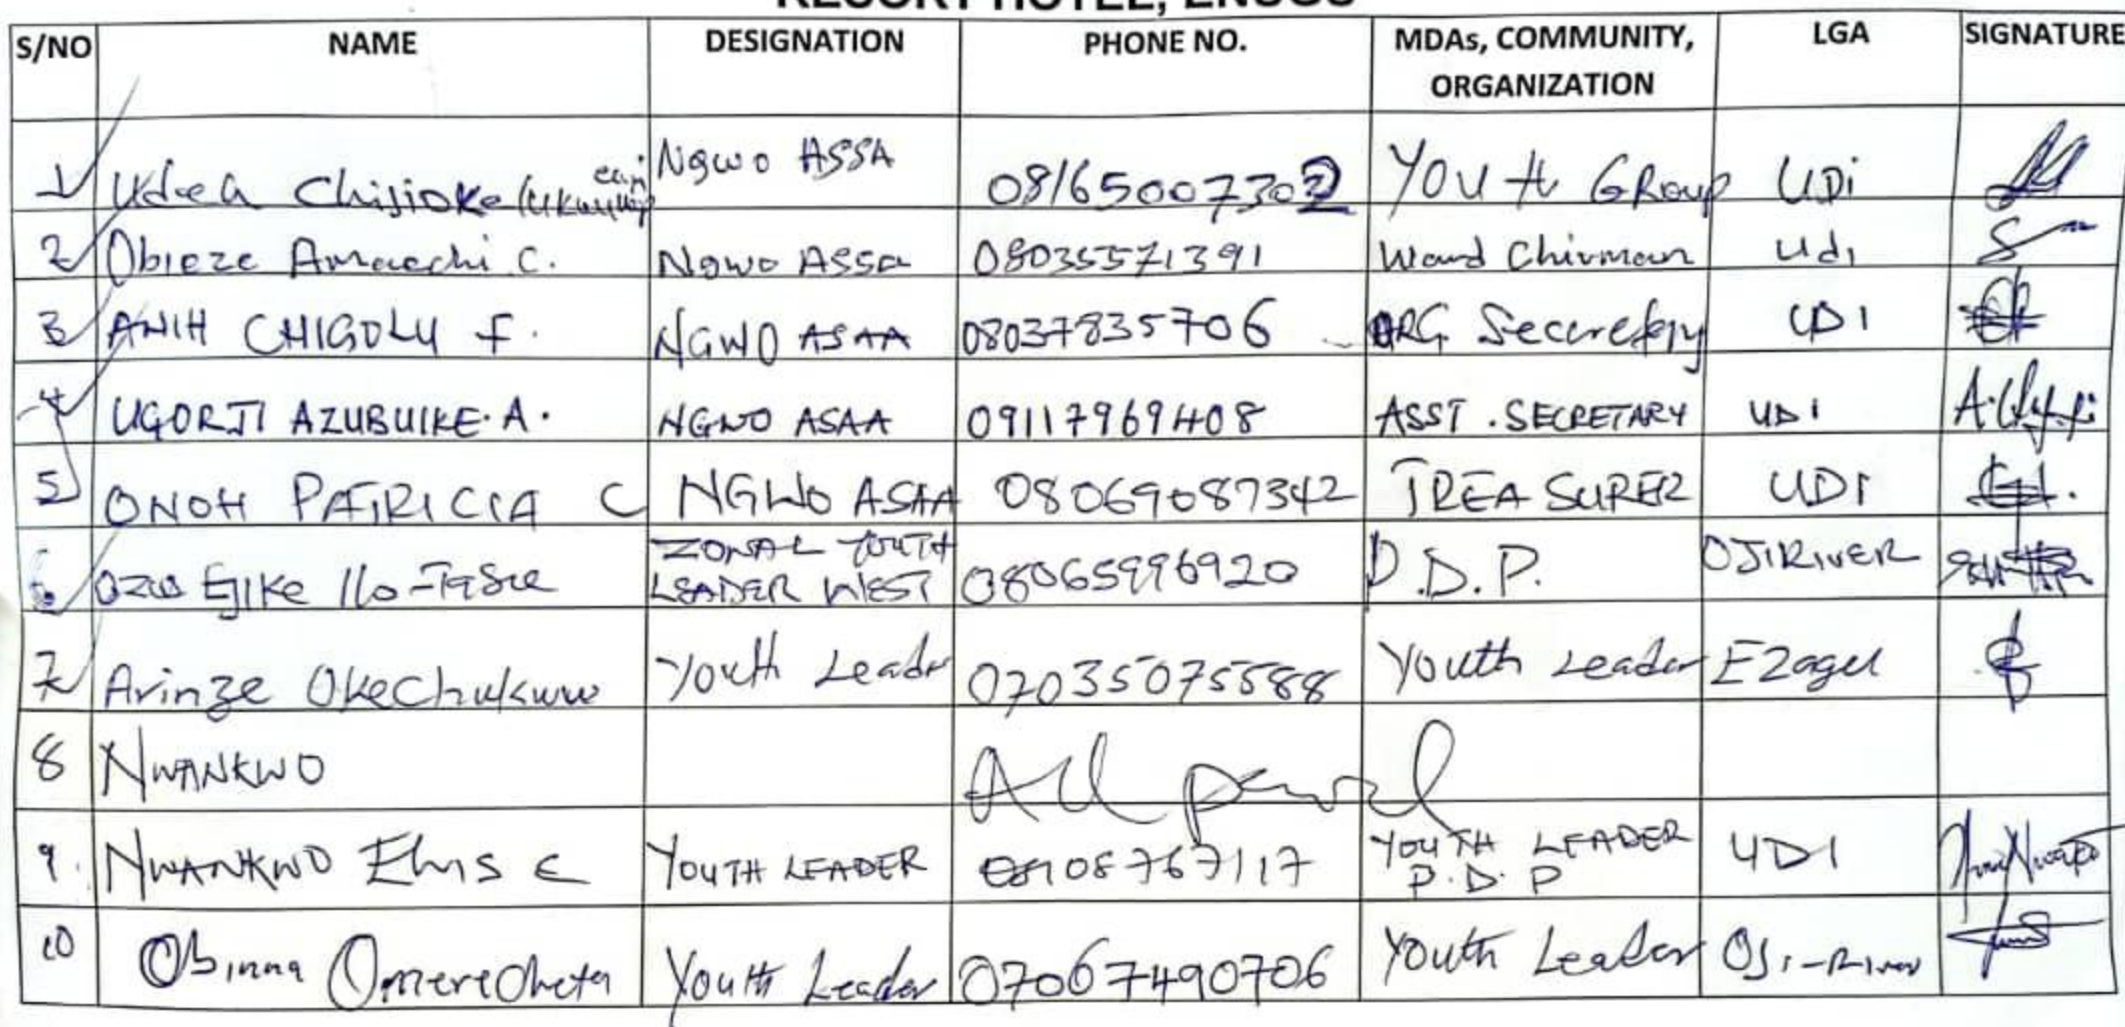 RESORT HOTEL, ENUGU
S/NO NAME DESIGNATION PHONE NO. MDAs, COMMUNITY, ORGANIZATION LGA SIGNATURE
1 Chijioke Ngwo ASSA 08165007302 YOUTH GROUP UDi
2 Obieze Amaechi C. Ngwo Assa 08035571391 Ward Chirman Udi
3 ANIH CHIGOLU F. NGWO ASAA 08037835706 ORG UDI
4 UGORJI AZUBUIKE. A. NGWO ASAA 09117969408 ASST. SECRETARY UDI
5 ONOH PATRICIA C NGWO ASAA 08069087342 TREASURER UDI
6 Ejike ZONAL YOUTH LEADER WEST 08065996920 P.D.P. OJIRIVER
7 Arinze Okechukwu Youth Leader 07035075588 Youth Leader Ezagu
8 NWANKWO
9. NWANKWO E YOUTH LEADER YOUTH LEADER P.D.P UDI
10 Obinna Youth Leader 07067490706 Youth Leader Oji-River